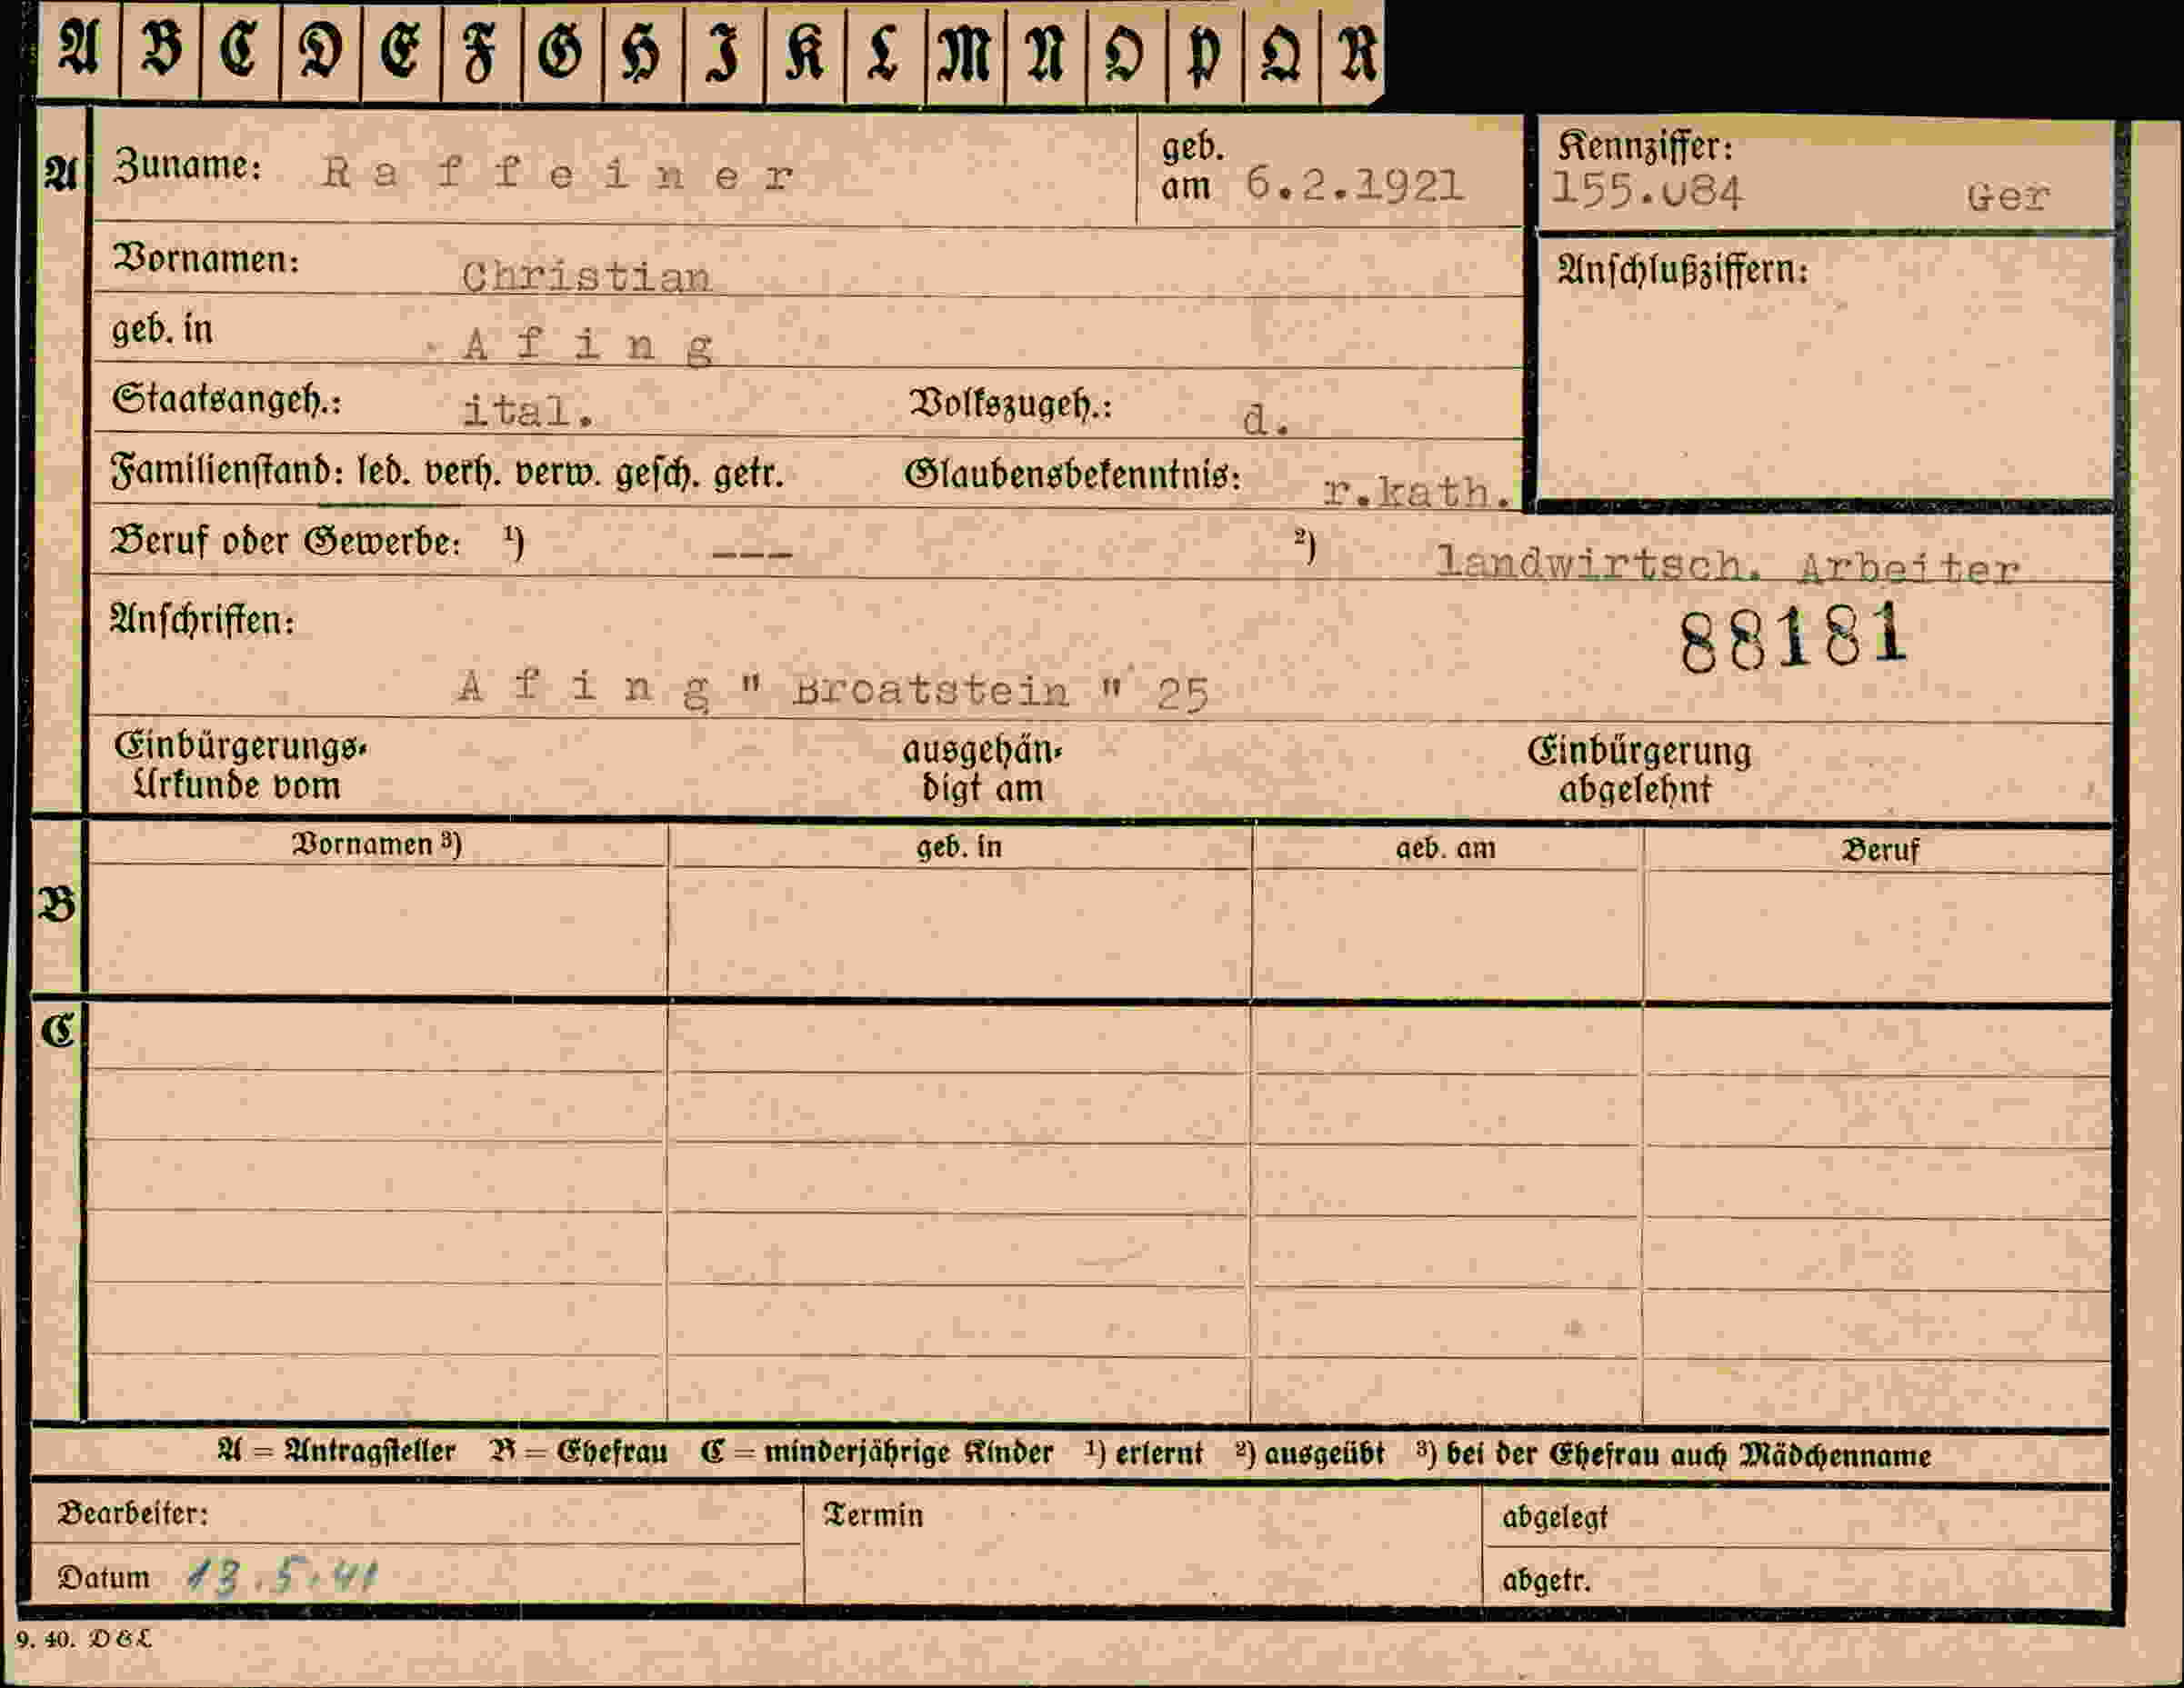 A B C D E F G H I K L M N O P Q R
A Zuname: Raffeiner geb. am 6.2.1921 Kennziffer: 155.084 Ger
Vornamen: Christian Anschlußziffern:
geb. in Afing
Staatsangeh.: ital. Volkszugeh.: d.
Familienstand: led. verh. verw. gesch. getr. Glaubensbekenntnis: r.kath.
Beruf oder Gewerbe: ¹) --- ²) landwirtsch. Arbeiter
Anschriften: 88181
Afing " Broatstein " 25
Einbürgerungs- ausgehän- Einbürgerung
Urkunde vom digt am abgelehnt
Vornamen ³) geb. in geb. am Beruf
B
C
A = Antragsteller B = Ehefrau C = minderjährige Kinder ¹) erlernt ²) ausgeübt ³) bei der Ehefrau auch Mädchenname
Bearbeiter: Termin abgelegt
Datum 13.5.41 abgetr.
9. 40. D&L